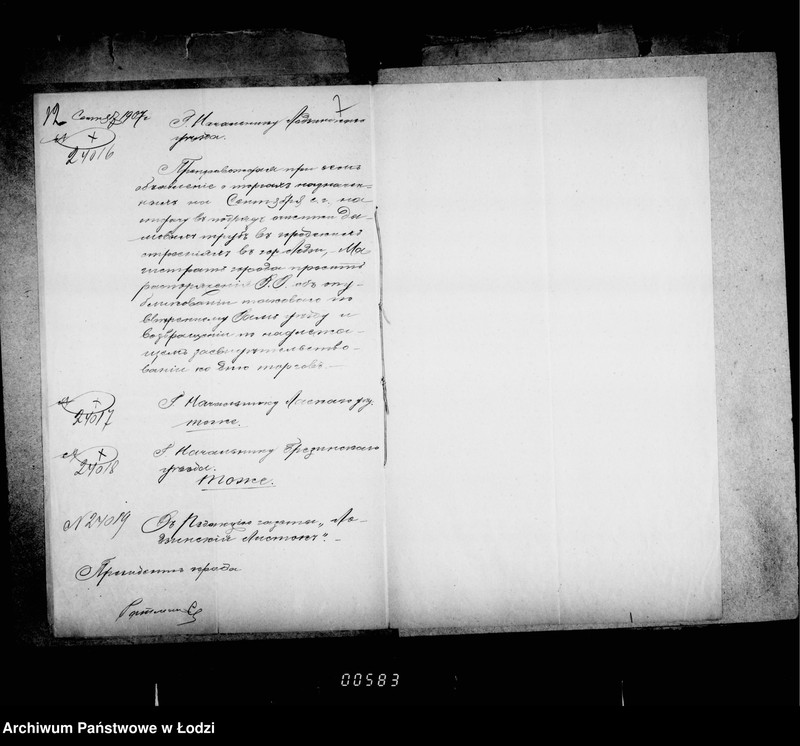 12 Сент. 1907 г.
7
Г. Начальнику Лодзинскаго
уѣзда.
№ 24016
Препровождая при семъ
объявленіе о торгахъ назначен-
ныхъ на Сентября с.г. на
отдачу въ подрядъ очистки ды-
мовыхъ трубъ въ городскихъ
строеніяхъ въ гор. Лодзи, Ма-
гистратъ города проситъ
распоряженія В. В. объ опу-
бликованіи таковаго по
ввѣренному Вамъ уѣзду и
возвращеніи въ надлежа-
щемъ засвидѣтельство-
ваніи ко дню торговъ.
№ 24017
Г. Начальнику Ласкаго уѣз.
тоже.
№ 24018
Г. Начальнику Брезинскаго
уѣзда.
Тоже.
№ 24019
Въ Редакцію газеты „Ло-
дзинскій Листокъ". —
Президентъ города
00583
Archiwum Państwowe w Łodzi